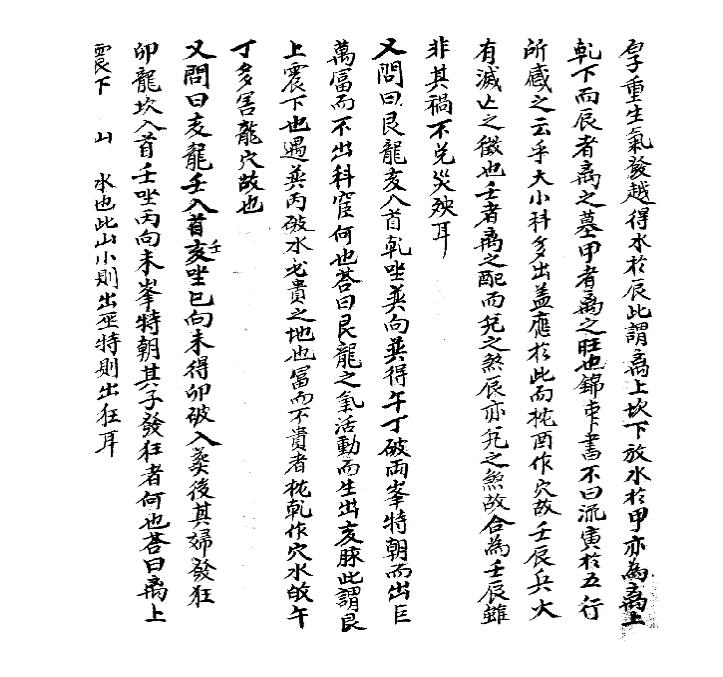 厚重生氣發越得水於辰此謂离上坎下放水於甲亦為离上
乹下而辰者离之墓甲者离之旺也錦囊書不曰流寅於五行
所感之云乎大小科多出盖應於此而枕酉作穴故壬辰兵大
有滅亾之徵也壬者离之配而兌之煞辰亦兌之煞故合為壬辰雖
非其禍不兌災殃耳
又問曰艮龍亥入首乹坐巽向巽得午丁破両峯特朝而出巨
萬富而不出科宦何也答曰艮龍之氣活動而生出亥脉此謂艮
上震下也遇巽丙破水尤貴之地也冨而不貴者枕乹作穴水破午
丁多害龍穴故也
又問曰亥龍壬入首亥壬坐巳向未得卯破入葬後其婦發狂
卯龍坎入首壬坐丙向未峯特朝其子發狂者何也答曰离上
震下 山 水也此山小則出巫特則出狂耳